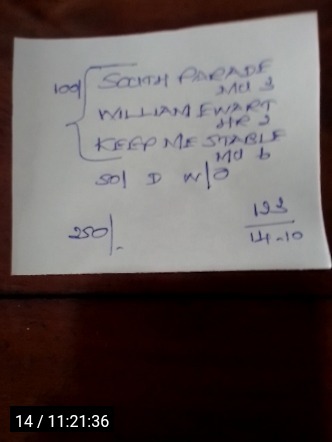 100/ SOUTH PARADE
Md 3
WILLIAM EWART
HR 3
KEEP ME STABLE
Md 6
50/ D W/O
250/-
123
14-10
14 / 11:21:36